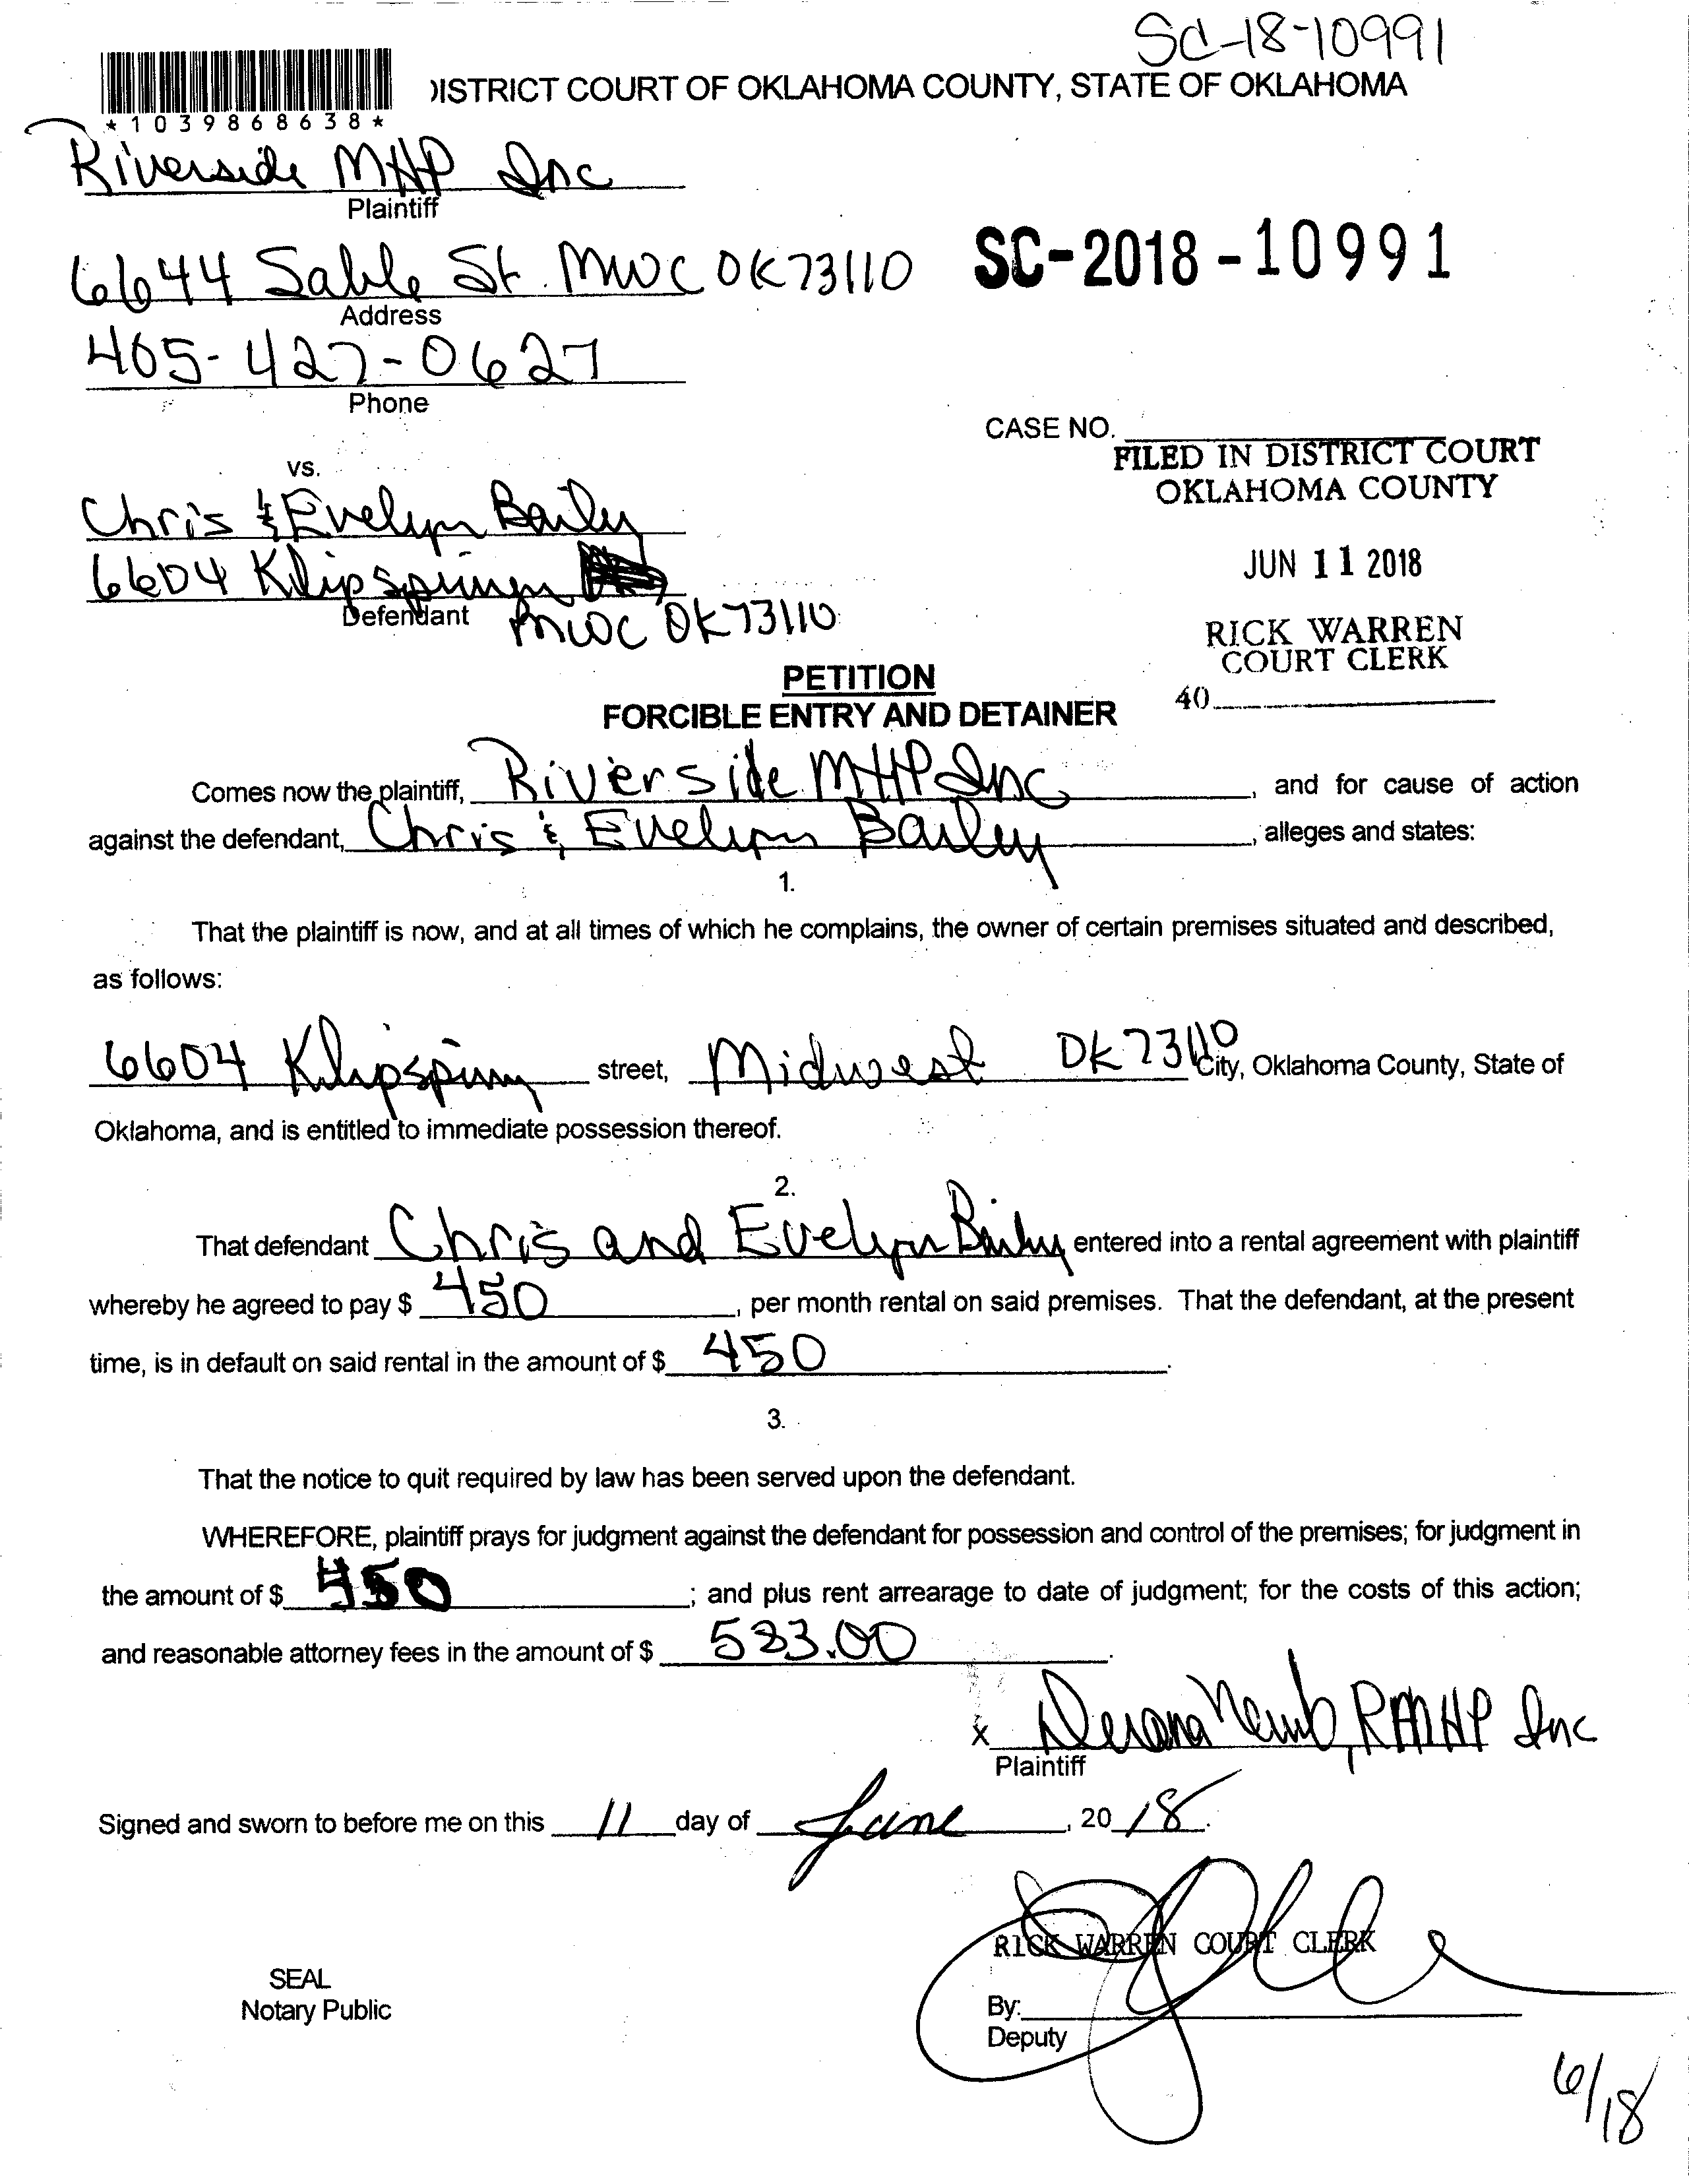 SC-18-10991
DISTRICT COURT OF OKLAHOMA COUNTY, STATE OF OKLAHOMA
*1039868638*
Riverside MHP Inc
Plaintiff
6644 Sable St. MWC OK 73110
SC-2018-10991
Address
405-427-0627
Phone
CASE NO.
FILED IN DISTRICT COURT
OKLAHOMA COUNTY
vs.
Chris & Evelyn Bailey
JUN 11 2018
6604 Klipspringer
Defendant
MWC OK 73110
RICK WARREN
COURT CLERK
40
PETITION
FORCIBLE ENTRY AND DETAINER
Comes now the plaintiff, Riverside MHP Inc, and for cause of action
against the defendant, Chris & Evelyn Bailey, alleges and states:
1.
That the plaintiff is now, and at all times of which he complains, the owner of certain premises situated and described,
as follows:
6604 street, Midwest OK 73110 City, Oklahoma County, State of
Oklahoma, and is entitled to immediate possession thereof.
2.
That defendant Chris and Evelyn Bailey entered into a rental agreement with plaintiff
whereby he agreed to pay $ 450, per month rental on said premises. That the defendant, at the present
time, is in default on said rental in the amount of $ 450.
3.
That the notice to quit required by law has been served upon the defendant.
WHEREFORE, plaintiff prays for judgment against the defendant for possession and control of the premises; for judgment in
the amount of $ 450; and plus rent arrearage to date of judgment; for the costs of this action;
and reasonable attorney fees in the amount of $ 583.00.
x RMHP Inc
Plaintiff
Signed and sworn to before me on this 11 day of June, 20 18.
RICK WARREN COURT CLERK
SEAL
Notary Public
By:
Deputy
6/18